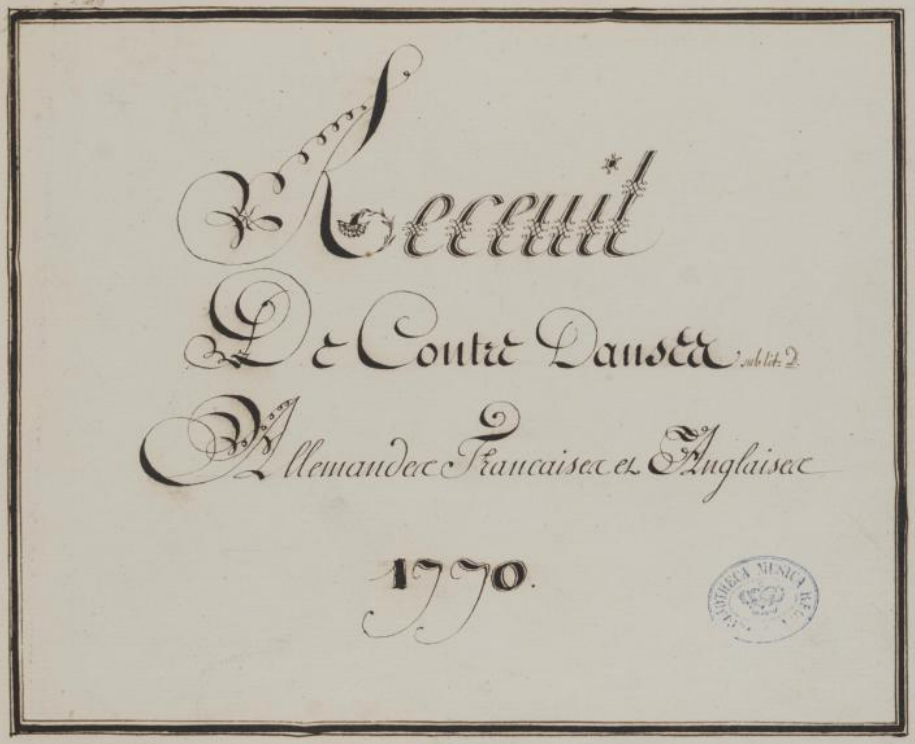 Receuil
De Contre Danses sub lit: D.
Allemandes Francaises et Anglaises
1770.
BIBLIOTHECA MUSICA REGIA